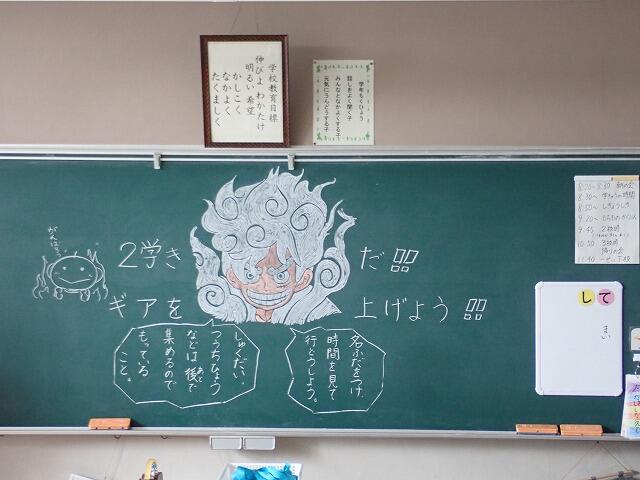 学校教育目標
伸びよ わかたけ
明るい 希望
かしこく
なかよく
たくましく
学年もくひょう
話しをよく聞く子
みんなとなかよくする子
元気にうんどうする子
がんばろう
2学き だ!!!
ギアを 上げよう!!!
しゅくだい、
つうちひょう
などは後で
あと
集めるので
もっている
こと。
名ふだをつけ
時間を見て
行どうしよう。
8:20~8:30 朝の会
8:30~
8:50~ しぎょうしき
9:20~
9:45 2校時
10:50 3校時
帰りの会
11:40 一せい下校
して
まい